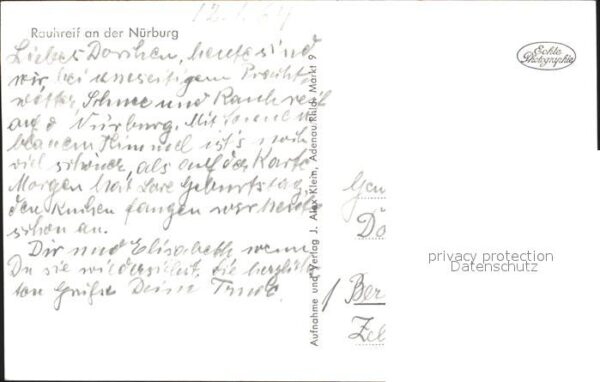 12. 1. 64
Rauhreif an der Nürburg
Liebes Dorchen, heute sind
wir bei Pracht-
wetter Schnee und Rauhreif
auf d. Nürburg. Mit
blauem Himmel ist's noch
viel schöner, als auf der Karte
Morgen hat Lore Geburtstag,
den Kuchen fangen wir heute
schon an.
Dir und Elisabeth wenn
Du sie wiedersiehst, die herzlich
sten Grüße Deine Trude.
Echte
Photographie
Aufnahme und Verlag J. Alex Klein, Adenau/Rhld. Markt 9
Ber
privacy protection
Datenschutz